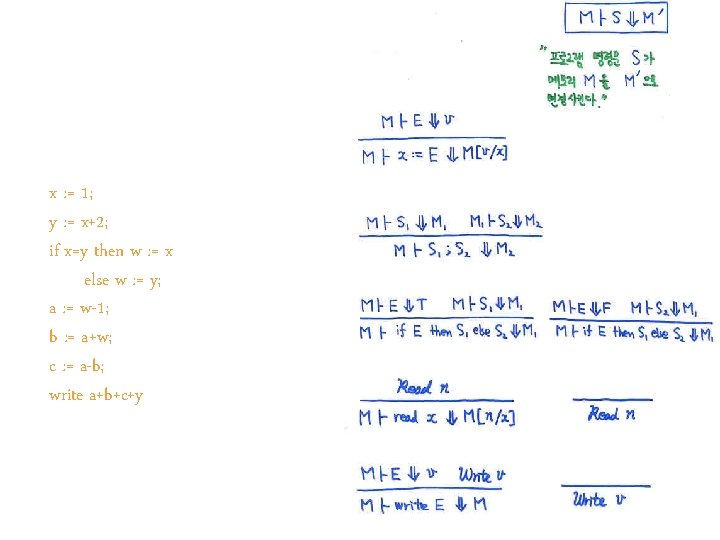 M ⊢ S ⇓ M′
"프로그램 명령문 S가
메모리 M을 M′으로
변경시킨다."
M ⊢ E ⇓ v
M ⊢ x := E ⇓ M[v/x]
x := 1;
y := x+2;
if x=y then w := x
else w := y;
a := w-1;
b := a+w;
c := a-b;
write a+b+c+y
M ⊢ S₁ ⇓ M₁ M₁ ⊢ S₂ ⇓ M₂
M ⊢ S₁ ; S₂ ⇓ M₂
M ⊢ E ⇓ T M ⊢ S₁ ⇓ M₁
M ⊢ if E then S₁ else S₂ ⇓ M₁
M ⊢ E ⇓ F M ⊢ S₂ ⇓ M₁
M ⊢ if E then S₁ else S₂ ⇓ M₁
Read n
M ⊢ read x ⇓ M[n/x]
Read n
M ⊢ E ⇓ v Write v
M ⊢ write E ⇓ M
Write v